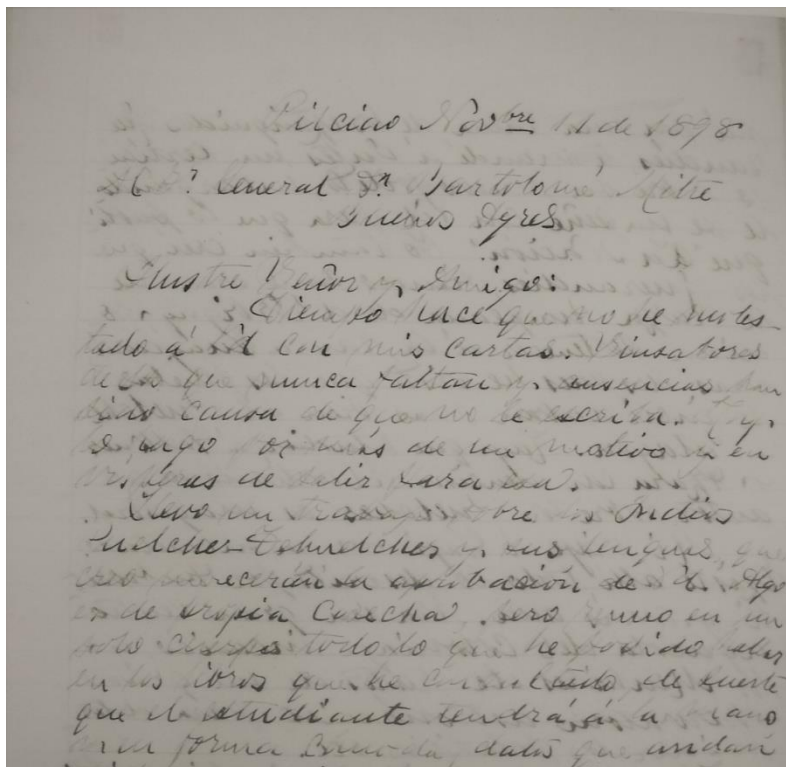 Pilciao Novbre 11 de 1898
General Dn Bartolomé Mitre
Buenos Ayres
Ilustre Señor y Amigo:
Tiempo hace que no he moles-
tado á U con mis cartas. Sinsabores
de los que nunca faltan y ausencias han
sido causa de que no le escriba.
hoy más de un motivo en
vísperas de salir para esa.
Llevo un trabajo sobre los Indios
Puelches-Tehuelches y sus lenguas, que
creo merecerán la aprobación de U. Algo
es de propia cosecha, pero reuno en un
solo cuerpo todo lo que he podido
en los libros que he consultado de suerte
que el estudiante tendrá á la mano
en forma cómoda, datos que